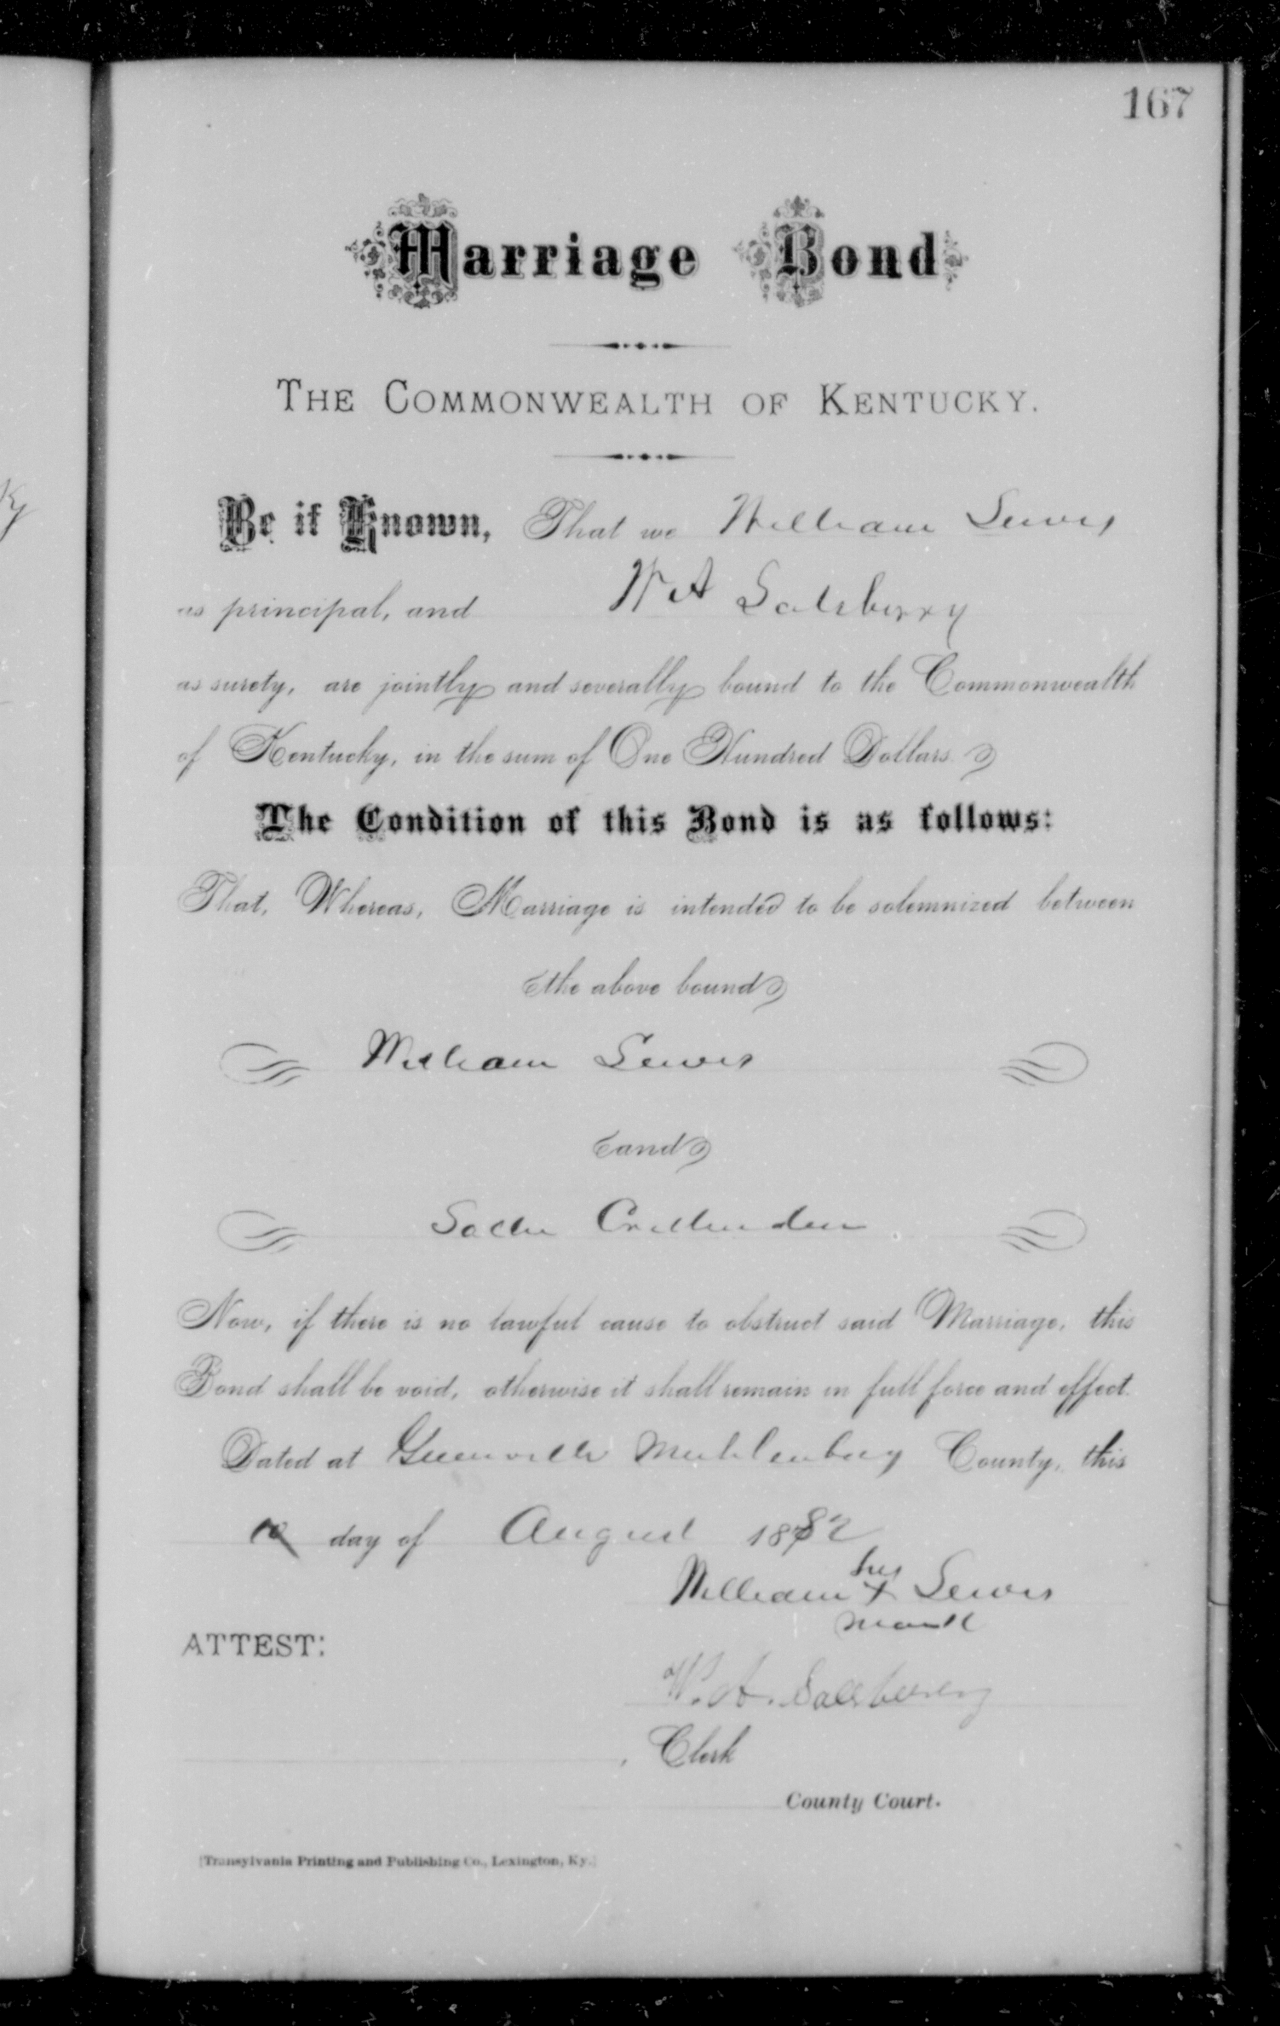 167
Marriage Bond
THE COMMONWEALTH OF KENTUCKY.
Ky
Be it Known, That we William Lewis
as principal, and W A Salsberry
as surety, are jointly and severally bound to the Commonwealth
of Kentucky, in the sum of One Hundred Dollars.
The Condition of this Bond is as follows:
That, Whereas, Marriage is intended to be solemnized between
the above bound
William Lewis
and
Sallie Crittenden
Now, if there is no lawful cause to obstruct said Marriage, this
Bond shall be void, otherwise it shall remain in full force and effect.
Dated at Greenville Muhlenburg County, this
10 day of August 1882
his
William X Lewis
mark
ATTEST:
W. A. Salsberry
, Clerk
County Court.
[Transylvania Printing and Publishing Co., Lexington, Ky.]